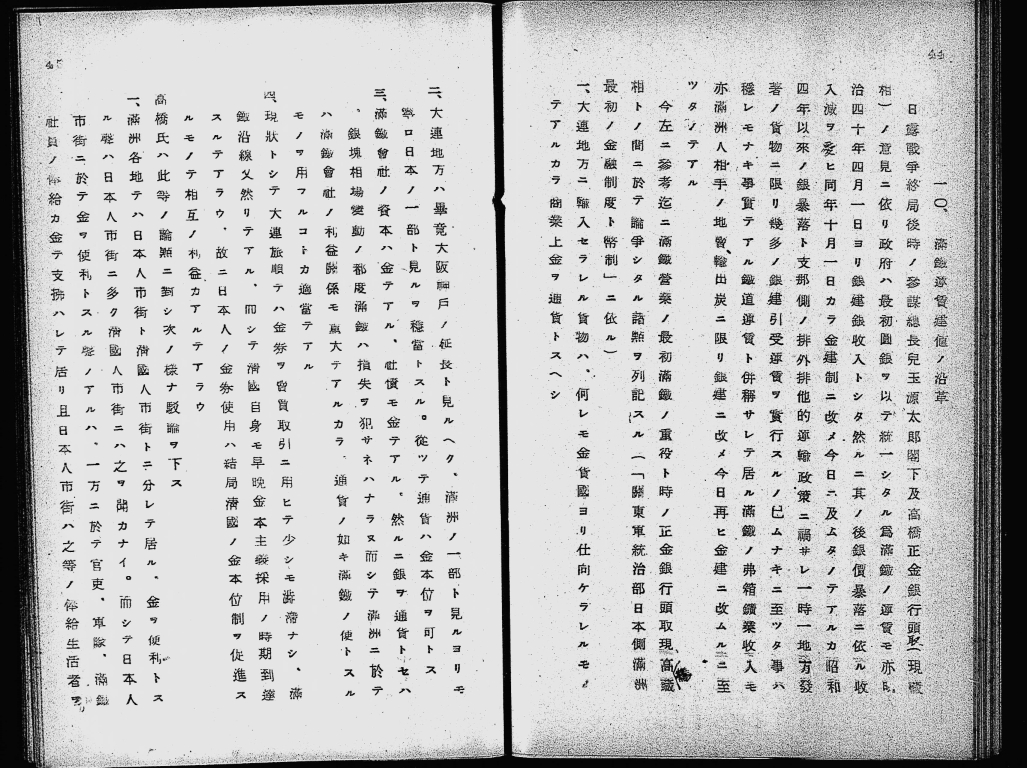 44
一〇、滿鐵運賃建値ノ沿革
日露戰爭終局後時ノ參謀總長兒玉源太郎閣下及高橋正金銀行頭取(現藏
相)ノ意見ニ依リ政府ハ最初圓銀ヲ以テ統一シタル爲滿鐵ノ運賃モ亦
治四十年四月一日ヨリ銀建銀收入トシタ然ルニ其ノ後銀價暴落ニ依ル收
入減ヲ憂ヒ同年十月一日カラ金建制ニ改メ今日ニ及ムタノテアルカ昭和
四年以來ノ銀暴落ト支那側ノ排外排他的運輸政策ニ禍サレ一時一地方發
著ノ貨物ニ限リ幾多ノ銀建引受運賃ヲ實行スルノ已ムナキニ至ツタ事ハ
穩レモナキ事實テアル鐵道運賃ト併稱サレテ居ル滿鐵ノ弗箱鑛業收入モ
亦滿洲人相手ノ地賣、輸出炭ニ限リ銀建ニ改メ今日再ヒ金建ニ改ムルニ至
ツタノテアル
今左ニ參考迄ニ滿鐵營業ノ最初滿鐵ノ重役ト時ノ正金銀行頭取現高橋藏
相トノ間ニ於テ論爭シタル諸點ヲ列記スル(「關東軍統治部日本側滿洲
最初ノ金融制度ト幣制」ニ依ル)
一、大連地方ニ輸入セラレル貨物ハ、何レモ金貨國ヨリ仕向ケラレルモノ
テアルカラ商業上金ヲ通貨トスヘシ
45
二、大連地方ハ畢竟大阪神戶ノ延長ト見ルヘク、滿洲ノ一部ト見ルヨリモ
寧ロ日本ノ一部ト見ルヲ穩當トスル。從ツテ通貨ハ金本位ヲ可トス
三、滿鐵會社ノ資本ハ金テアル、社債モ金テアル、然ルニ銀ヲ通貨トセハ
、銀塊相場變動ノ都度滿鐵ハ損失ヲ犯サネハナラヌ而シテ滿洲ニ於テ
ハ滿鐵會社ノ利益關係モ重大テアルカラ、通貨ノ如キ滿鐵ノ便トスル
モノヲ用フルコトカ適當テアル
四、現狀トシテ大連旅順テハ金券ヲ賣買取引ニ用ヒテ少シモ澁滯ナシ、滿
鐵沿線又然リテアル、而シテ淸國自身モ早晩金本主義採用ノ時期到達
スルテアラウ、故ニ日本人ノ金券使用ハ結局淸國ノ金本位制ヲ促進ス
ルモノテ相互ノ利益カアルテアラウ
高橋氏ハ此等ノ論點ニ對シ次ノ樣ナ駁論ヲ下ス
一、滿洲各地テハ日本人市街ト淸國人市街トニ分レテ居ル、金ヲ便利トス
ル聲ハ日本人市街ニ多ク淸國人市街ニハ之ヲ聞カナイ。而シテ日本人
市街ニ於テ金ヲ便利トスル聲ノアルハ、一方ニ於テ官吏、軍隊、滿鐵
社員ノ俸給カ金テ支拂ハレテ居リ且日本人市街ハ之等ノ俸給生活者ヲ